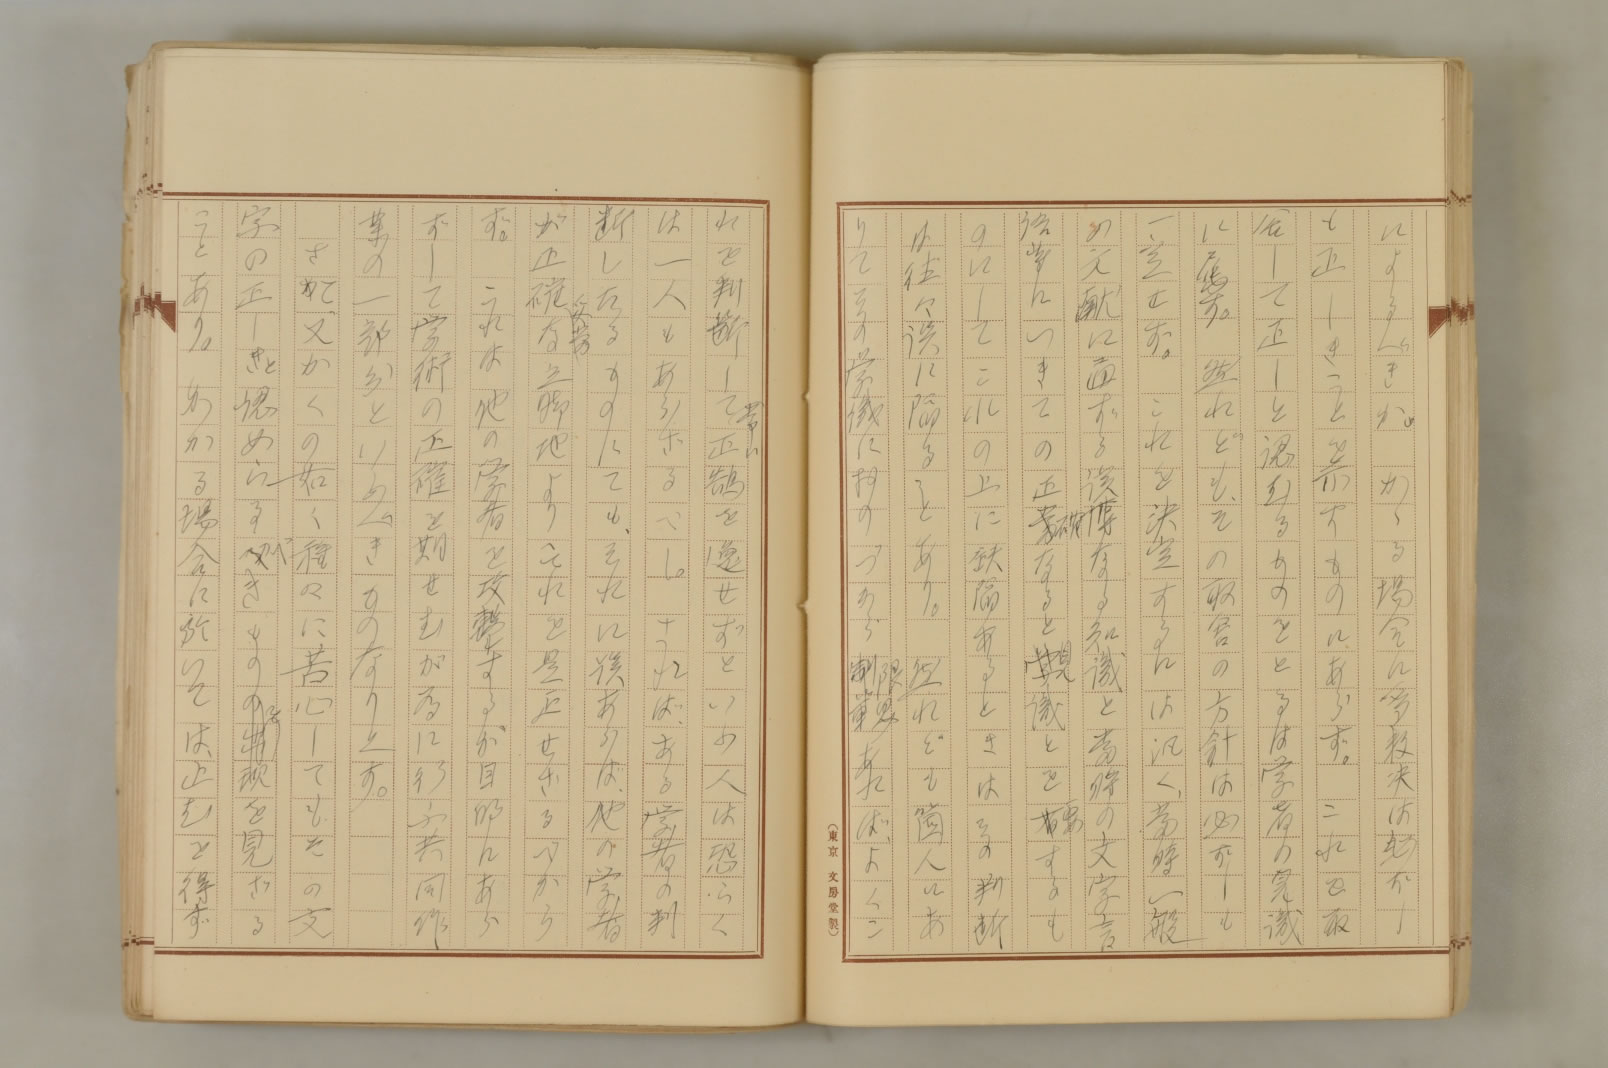 によるべきか。かゝる場合に多数決は必ずし
も正しきことを示すものにあらず。これを取
捨して正しと認むるものをとるは学者の見識
に属す。然れども、その取舎の方針は必ずしも
一定せず。これを決定するには汎く、当時一般
の文献に直する該博なる知識と当時の文字言
語等についきての正確なると見識とを要するも
のにしてこれの上に缺陥あるときはその判断
は往々誤に陥ることあり。然れども箇人にあ
りてその学識におのづから限界あれば、よくこ
(東京 文房堂製)
れを判断して常に正鵠を逸せずといふ人は恐らく
は一人もあらざるべし。されば、ある学者の判
断したるものにても、それに誤あらば、他の学者
が正確なる立脚地よりこれを是正せざるべから
ず。これは他の学者を攻撃するが目的にあら
ずして学術の正確を期せむが為に行ふ共同作
業の一部分といふべきものなりとす。
さて又かくの如く種々に苦心してもその文
字の正しきと認めらるべきものの出現を見ざる
ことあり。かかる場合に於いては、止むを得ず